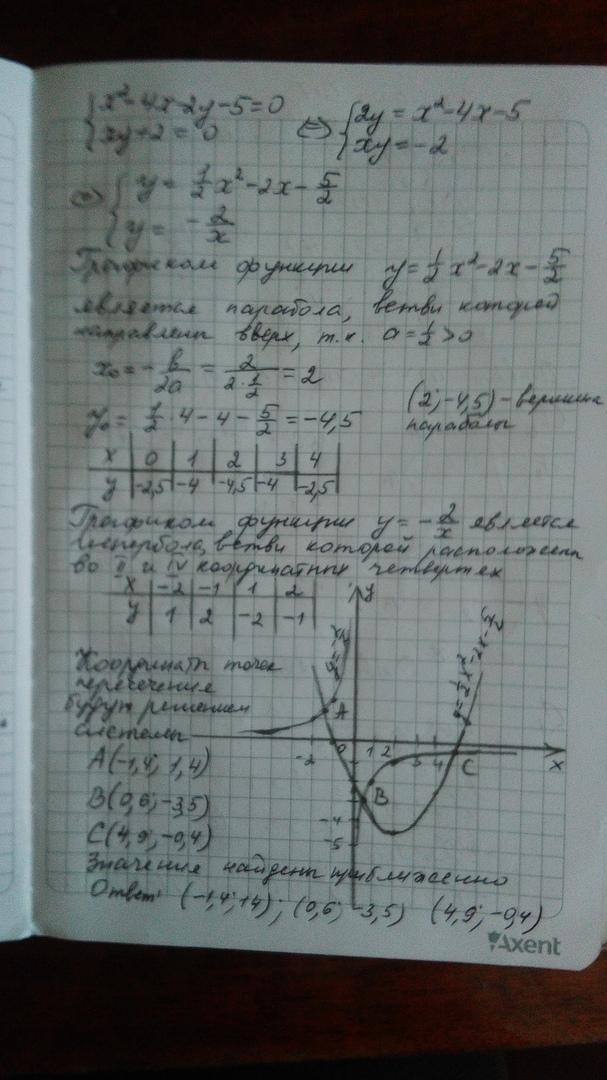 {x²-4x-2y-5=0 ⇔ {2y = x²-4x-5
{xy+2=0 {xy=-2
⇔ {y = 1/2 x²-2x-5/2
{y = -2/x
Графиком функции y=1/2 x²-2x-5/2
является парабола, ветви которой
направлены вверх, т.к. a=1/2>0
x₀=-b/2a = 2/(2·1/2) = 2
y₀ = 1/2·4-4-5/2 = -4,5 (2;-4,5)-вершина
параболы
x | 0 | 1 | 2 | 3 | 4
y | -2,5 | -4 | -4,5 | -4 | -2,5
Графиком функции y=-2/x является
гипербола, ветви которой расположены
во II и IV координатных четвертях
x | -2 | -1 | 1 | 2
y | 1 | 2 | -2 | -1
y
y=-2/x
y=1/2 x²-2x-5/2
Координаты точек
пересечения
будут решением
системы
A
-2 0 1 2 3 4 C x
B
-4
-5
A(-1,4; 1,4)
B(0,6; -3,5)
C(4,9; -0,4)
Значения найдены приближенно
Ответ: (-1,4; 1,4); (0,6; -3,5) (4,9; -0,4)
Axent